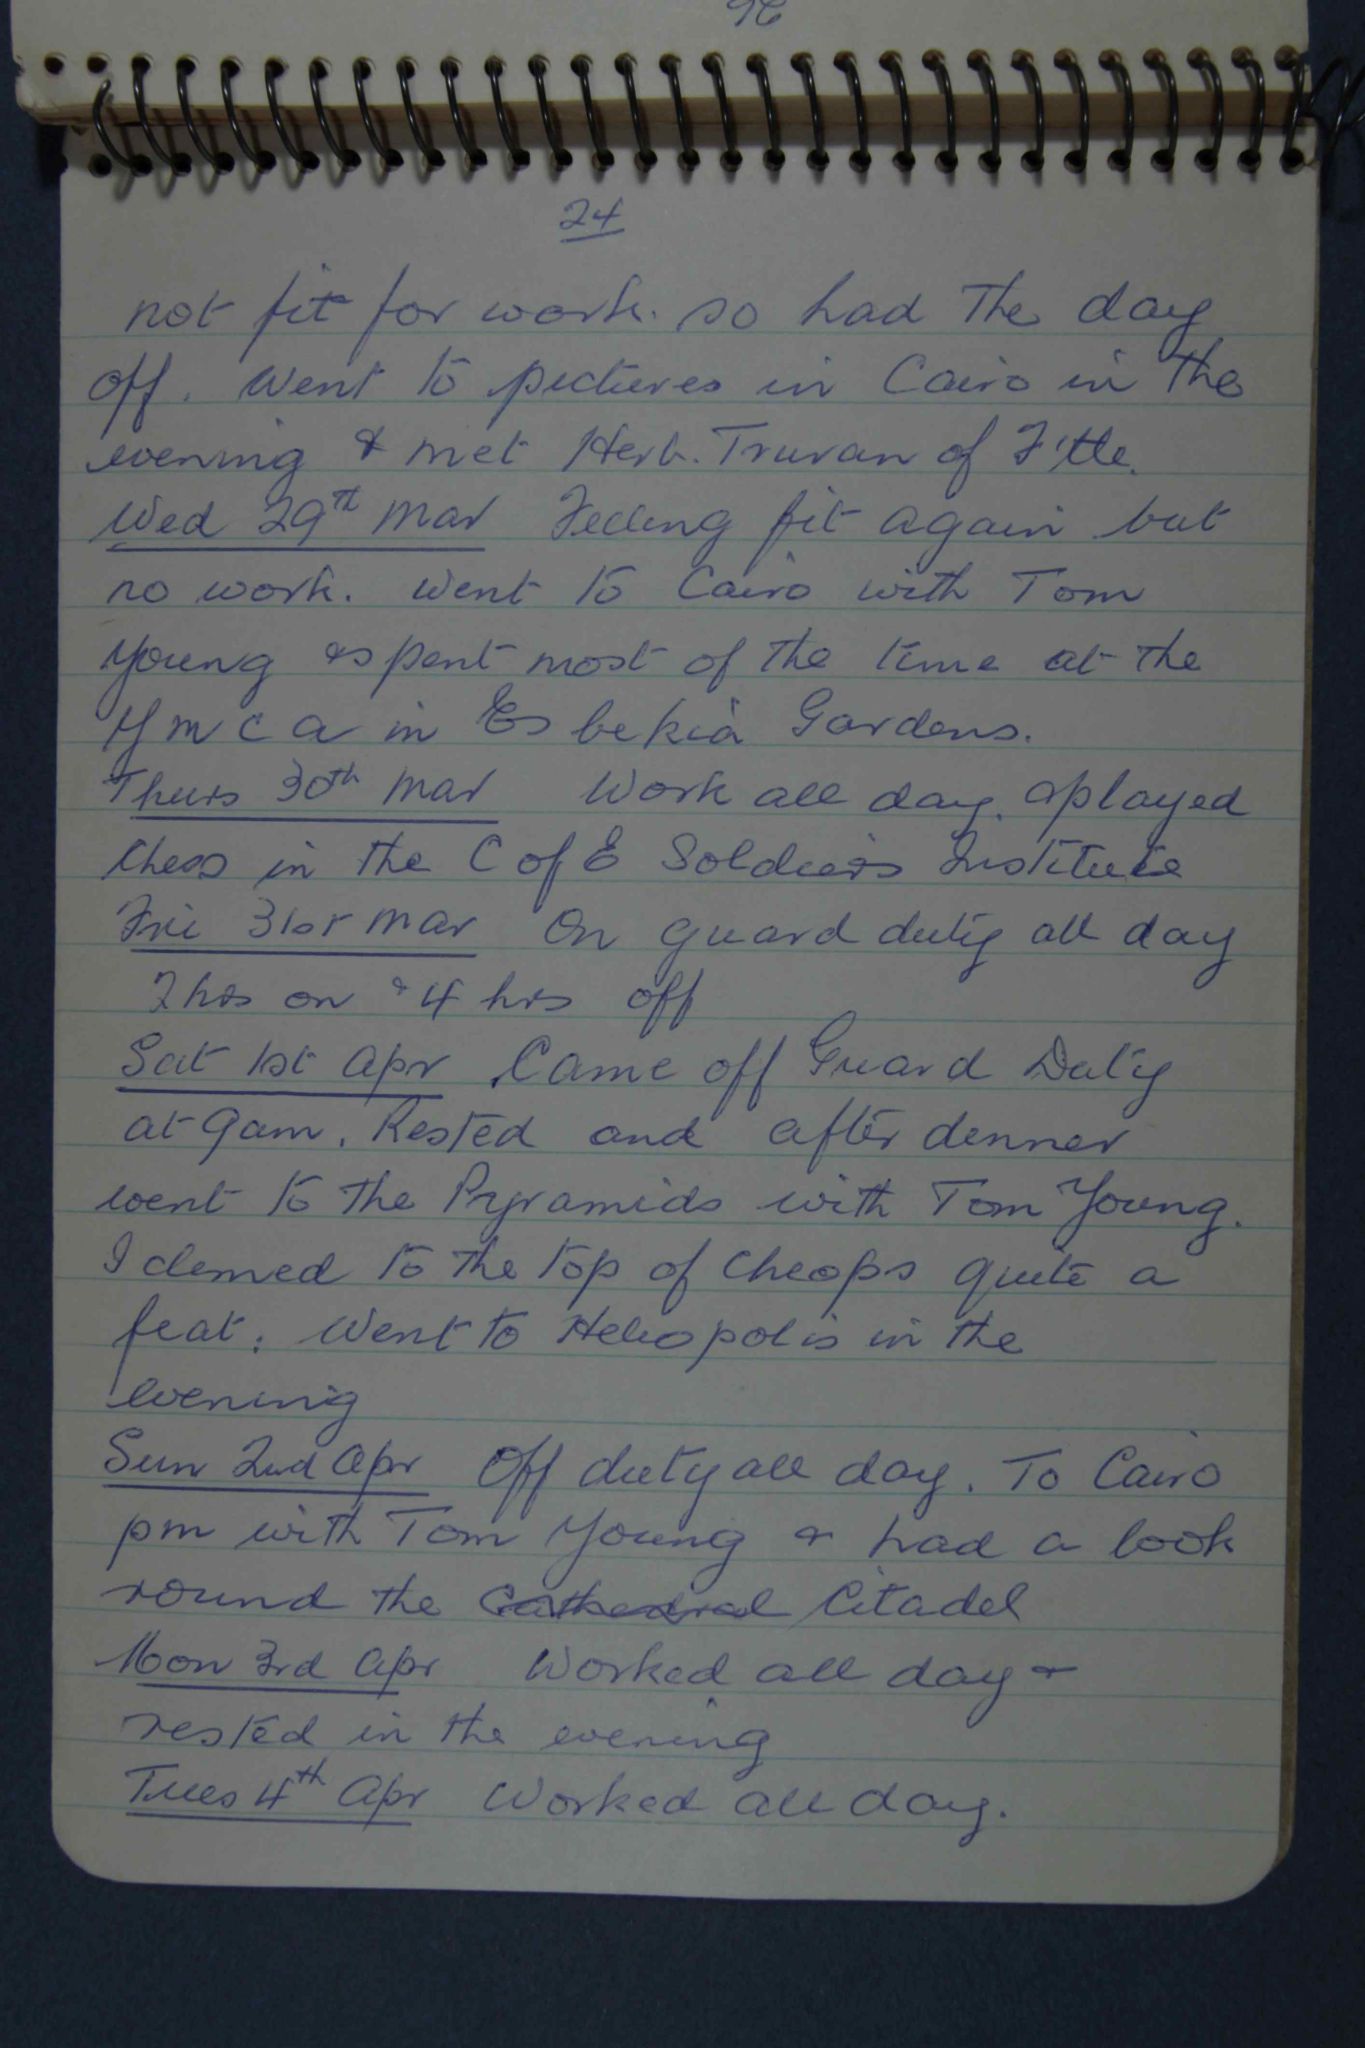 24
not fit for work. so had the day
off. Went to pictures in Cairo in the
evening & met Herb. Truran of F'tle.
Wed 29th Mar Feeling fit again but
no work. Went to Cairo with Tom
Young & spent most of the time at the
Y M C A in Esbekia Gardens.
Thurs 30th Mar Work all day. & played
Chess in the C of E Soldiers Institute
Fri 31st Mar On guard duty all day
2 hrs on & 4 hrs off
Sat 1st Apr Came off Guard Duty
at 9am. Rested and after dinner
went to the Pyramids with Tom Young.
I climed to the top of Cheops quite a
feat. Went to Heliopolis in the
evening
Sun 2nd Apr Off duty all day. To Cairo
pm with Tom Young & had a look
round the Cathedral Citadel
Mon 3rd Apr Worked all day &
rested in the evening
Tues 4th Apr Worked all day.